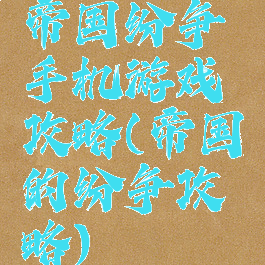 帝国纷争
手机游戏
攻略(帝国
的纷争攻
略)